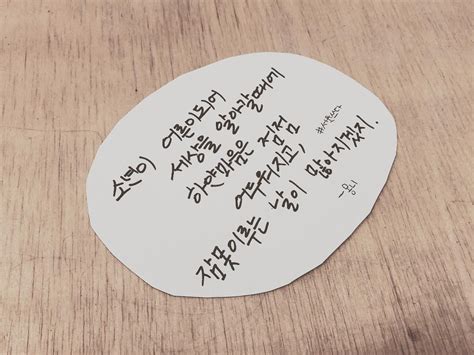 소년이 어른이되어
세상을 알아갈때에
하얀마음은 점점
어두워지고,
잠못이루는 날이 많아지겠지.
#서른쓰다
-용니